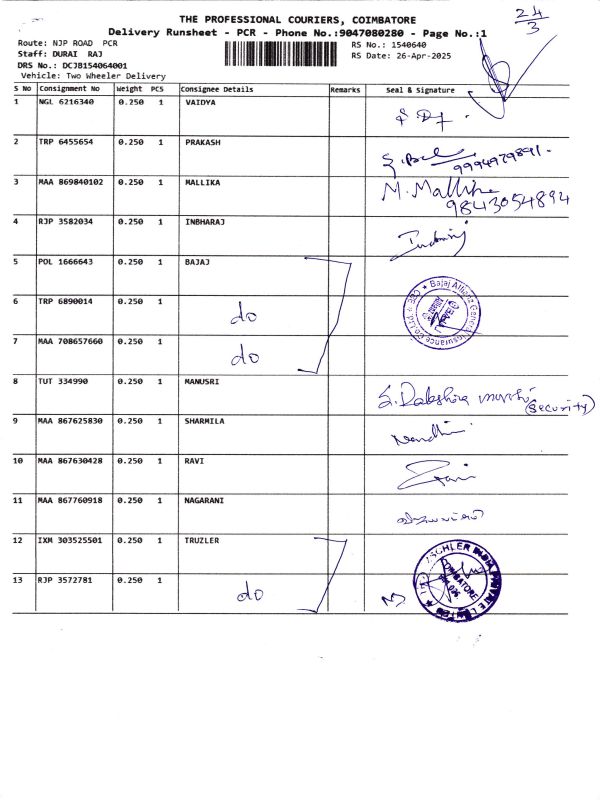 THE PROFESSIONAL COURIERS, COIMBATORE
Delivery Runsheet - PCR - Phone No.:9047080280 - Page No.:1
24/3
Route: NJP ROAD PCR
RS No.: 1540640
Staff: DURAI RAJ
RS Date: 26-Apr-2025
DRS No.: DCJB154064001
Vehicle: Two Wheeler Delivery
S No Consignment No Weight PCS Consignee Details Remarks Seal & Signature
1 NGL 6216340 0.250 1 VAIDYA
2 TRP 6455654 0.250 1 PRAKASH
9994979891.
3 MAA 869840102 0.250 1 MALLIKA M. Mallika
9843054894
4 RJP 3582034 0.250 1 INBHARAJ
5 POL 1666643 0.250 1 BAJAJ
6 TRP 6890014 0.250 1 do
7 MAA 708657660 0.250 1 do
8 TUT 334990 0.250 1 MANUSRI
(Security)
9 MAA 867625830 0.250 1 SHARMILA Nandhini
10 MAA 867630428 0.250 1 RAVI
11 MAA 867760918 0.250 1 NAGARANI
12 IXM 303525501 0.250 1 TRUZLER
13 RJP 3572781 0.250 1 do